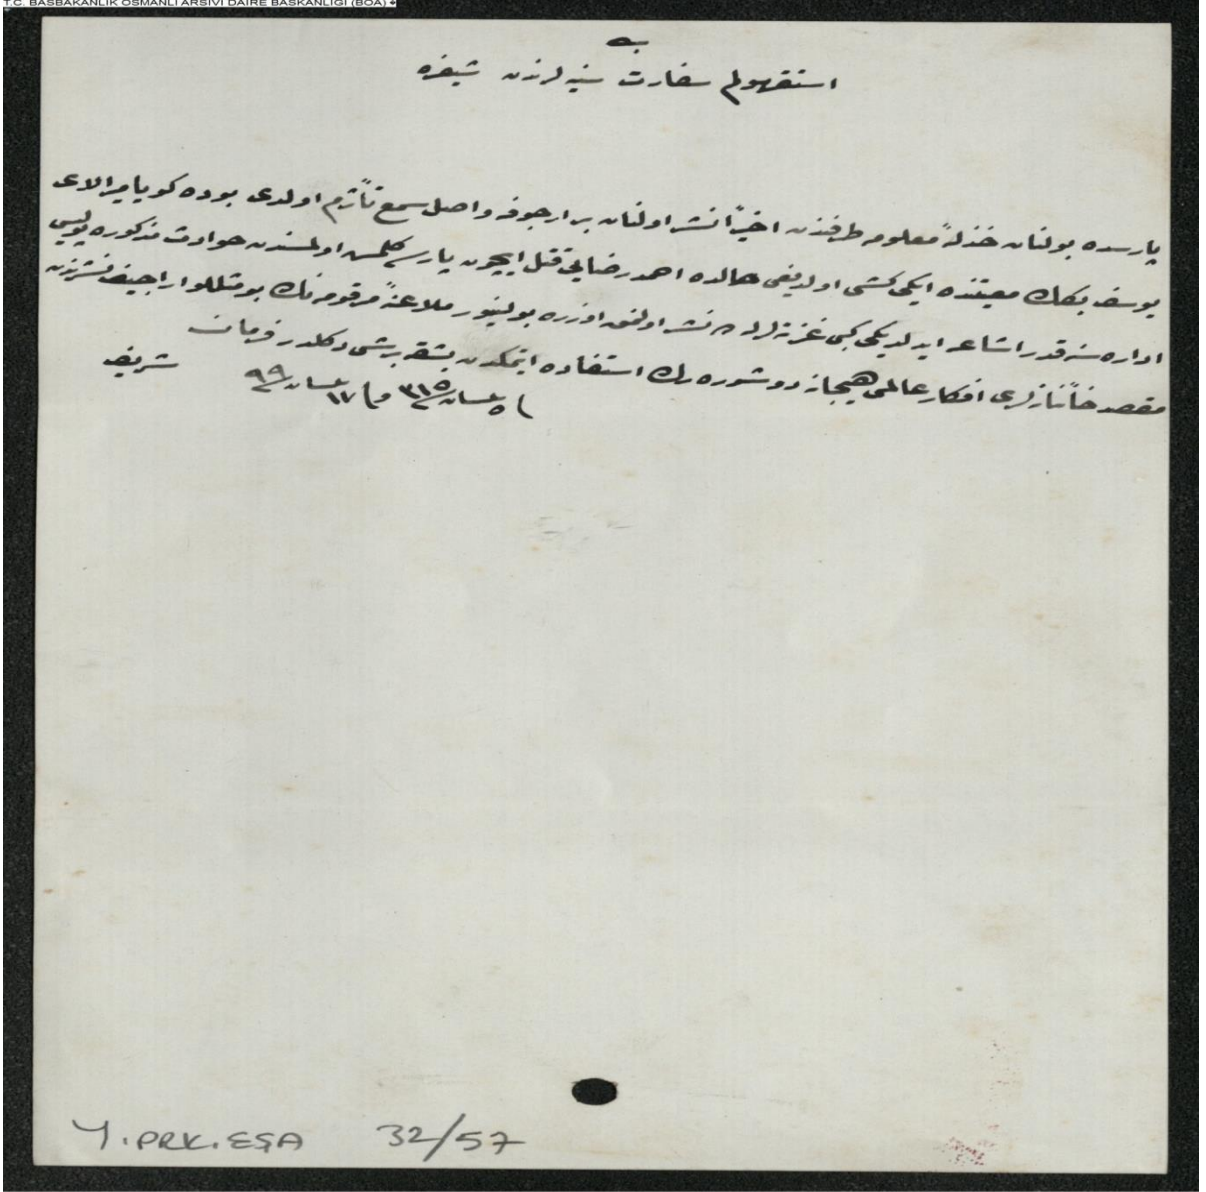 T.C. BAŞBAKANLIK OSMANLI ARŞİVİ DAİRE BAŞKANLIĞI (BOA)
استوقهولم سفارت سنیه لرندن شیفره
پارسده بولنان خذلهٔ معلومه طرفندن اخیراً نشر اولنان بر ارجوفه واصل سمع تأثرم اولدی بوده کویا میرالای
یوسف بكك معیتنده ایکی کشی اولدیغی حالده احمد رضایی قتل ایچون پارسه کلمش اولمسندن حوادث مذکوره پولیس
اداره سنه قدر اشاعه ایدلدیکی کبی غزته لرله ده نشر اولنمق اوزره بولنیور ملاعنهٔ مرقومه نك بو مثللو اراجیف نشرندن
مقصد خائنانه لری افکار عالمی هیجانه دوشوره رك استفاده ایتمکدن بشقه برشی دکلدر فرمان
فی ٥ نیسان ٣١٥ و فی ١٧ نیسان ٩٩ شریف
Y.PRK.EŞA 32/57